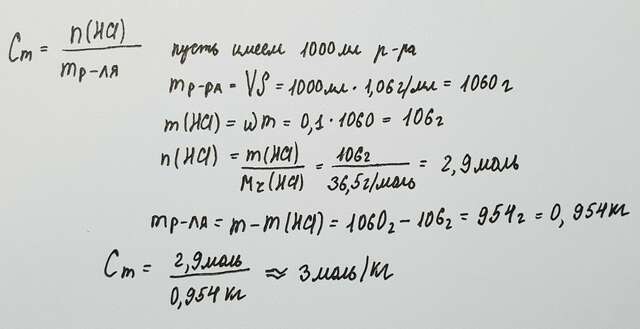 Cm = n(HCl) / mр-ля пусть имеем 1000мл р-ра
mр-ра = Vρ = 1000мл · 1,06г/мл = 1060г
m(HCl) = ωm = 0,1 · 1060 = 106г
n(HCl) = m(HCl) / Mr(HCl) = 106г / 36,5г/моль = 2,9моль
mр-ля = m - m(HCl) = 1060г - 106г = 954г = 0,954кг
Cm = 2,9моль / 0,954кг ≈ 3моль/кг